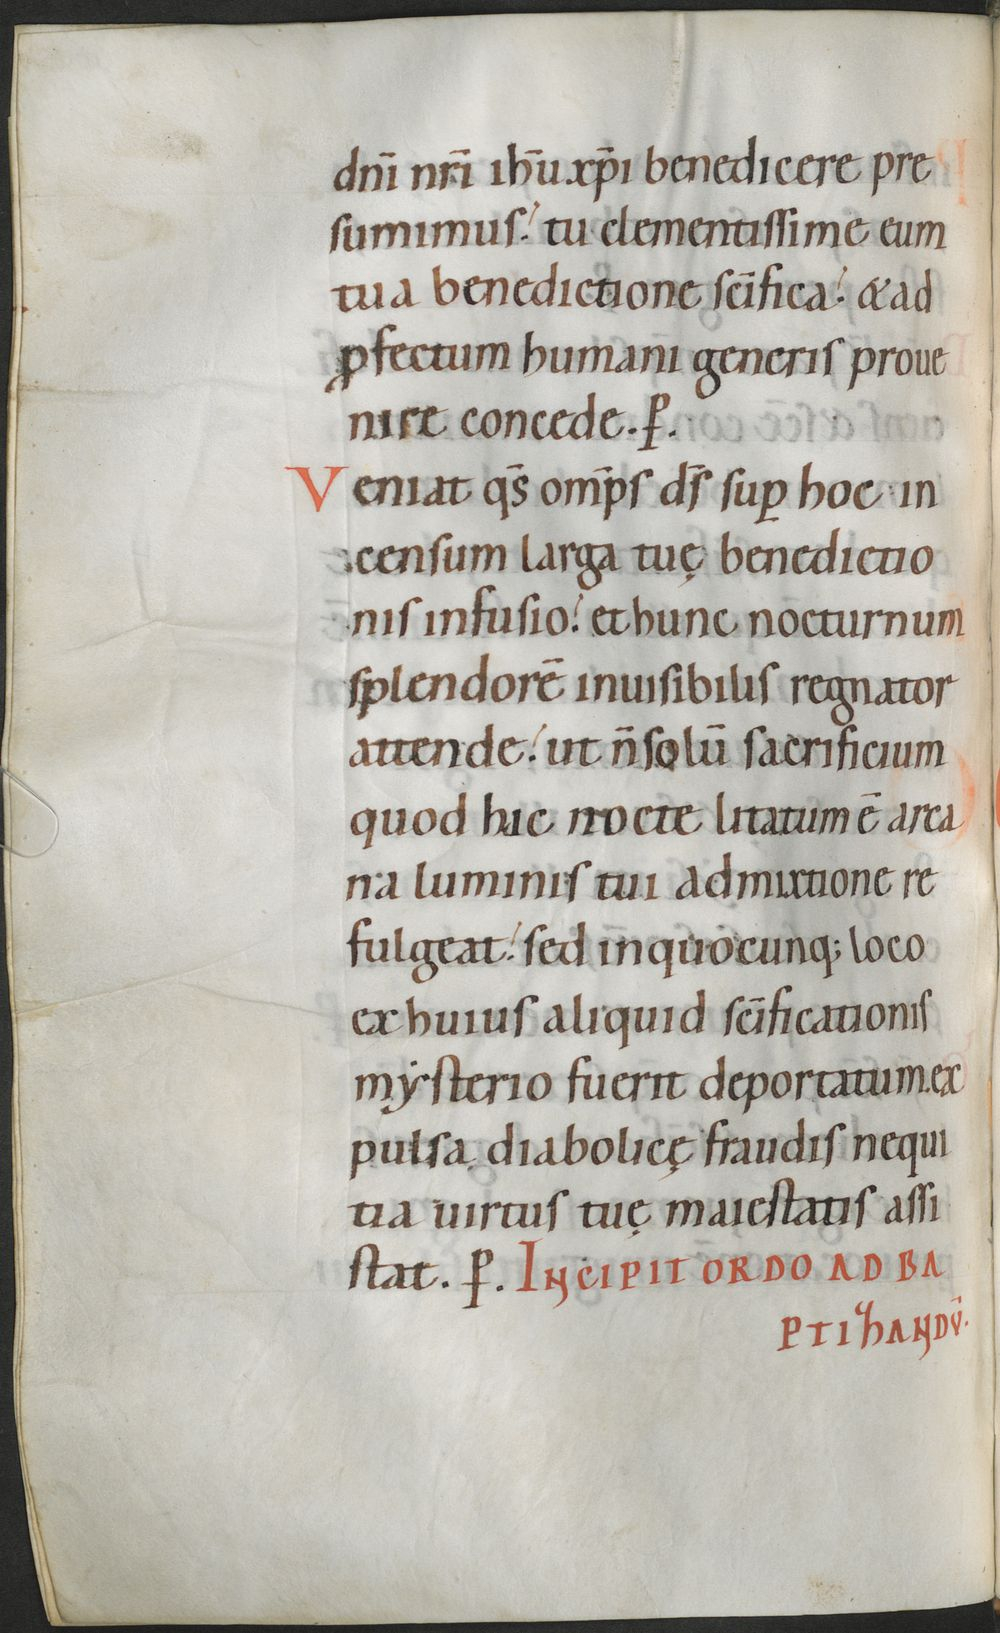 dn̄i nr̄i ih̄u xp̄i benedicere pre
sumimus. tu clementissime eum
tua benedictione sc̄ifica. & ad
ꝓfectum humani generis proue
nire concede. P̲.
Veniat qs̄ omp̄s ds̄ suꝑ hoc in
censum larga tuę benedictio
nis infusio. et hunc nocturnum
splendorē inuisibilis regnator
attende. ut n̄ solū sacrificium
quod hac nocte litatum ē arca
na luminis tui admixtione re
fulgeat. sed in quocunq; loco
ex huius aliquid sc̄ificationis
mẏsterio fuerit deportatum. ex
pulsa diabolicę fraudis nequi
tia uirtus tuę maiestatis assi
stat. P̲. INCIPIT ORDO AD BA
PTIZANDŪ.